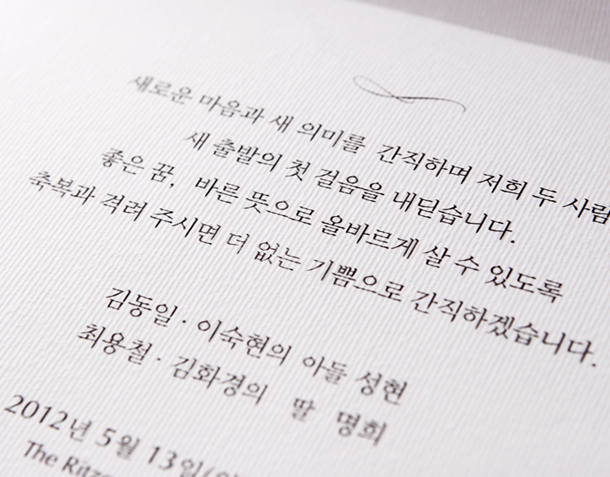 새로운 마음과 새 의미를 간직하며 저희 두 사람
새 출발의 첫 걸음을 내딛습니다.
좋은 꿈, 바른 뜻으로 올바르게 살 수 있도록
축복과 격려 주시면 더 없는 기쁨으로 간직하겠습니다.
김동일 · 이숙현의 아들 성현
최용철 · 김화경의 딸 명희
2012년 5월 13일(
The Ritz